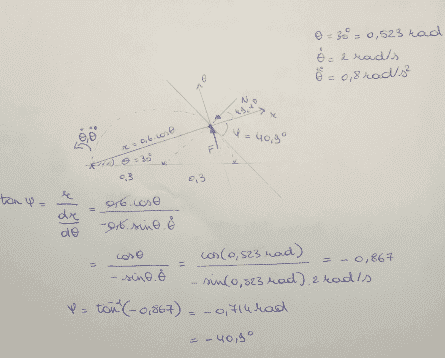 θ = 30° = 0,523 rad
θ̇ = 2 rad/s
θ̈ = 0,8 rad/s²
θ
N
49,1°
r
θ̇, θ̈
r = 0,6.cosθ
ψ = 40,9°
θ = 30°
F
0,3
0,3
tan ψ = r / dr/dθ = 0,6.cosθ / -0,6.sinθ.θ̇
= cosθ / -sinθ.θ̇ = cos(0,523 rad) / -sin(0,523 rad).2 rad/s = -0,867
ψ = tan⁻¹(-0,867) = -0,714 rad
= -40,9°